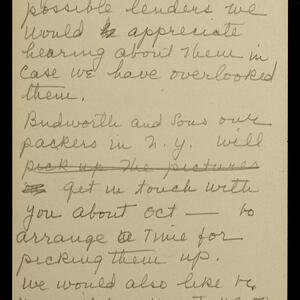 possible lenders we
would appreciate
hearing about them in
case we have overlooked
them.
Budworth and Sons our
packers in N.Y. will
pick up the pictures
get in touch with
you about Oct — to
arrange a time for
picking them up.
We would also like to